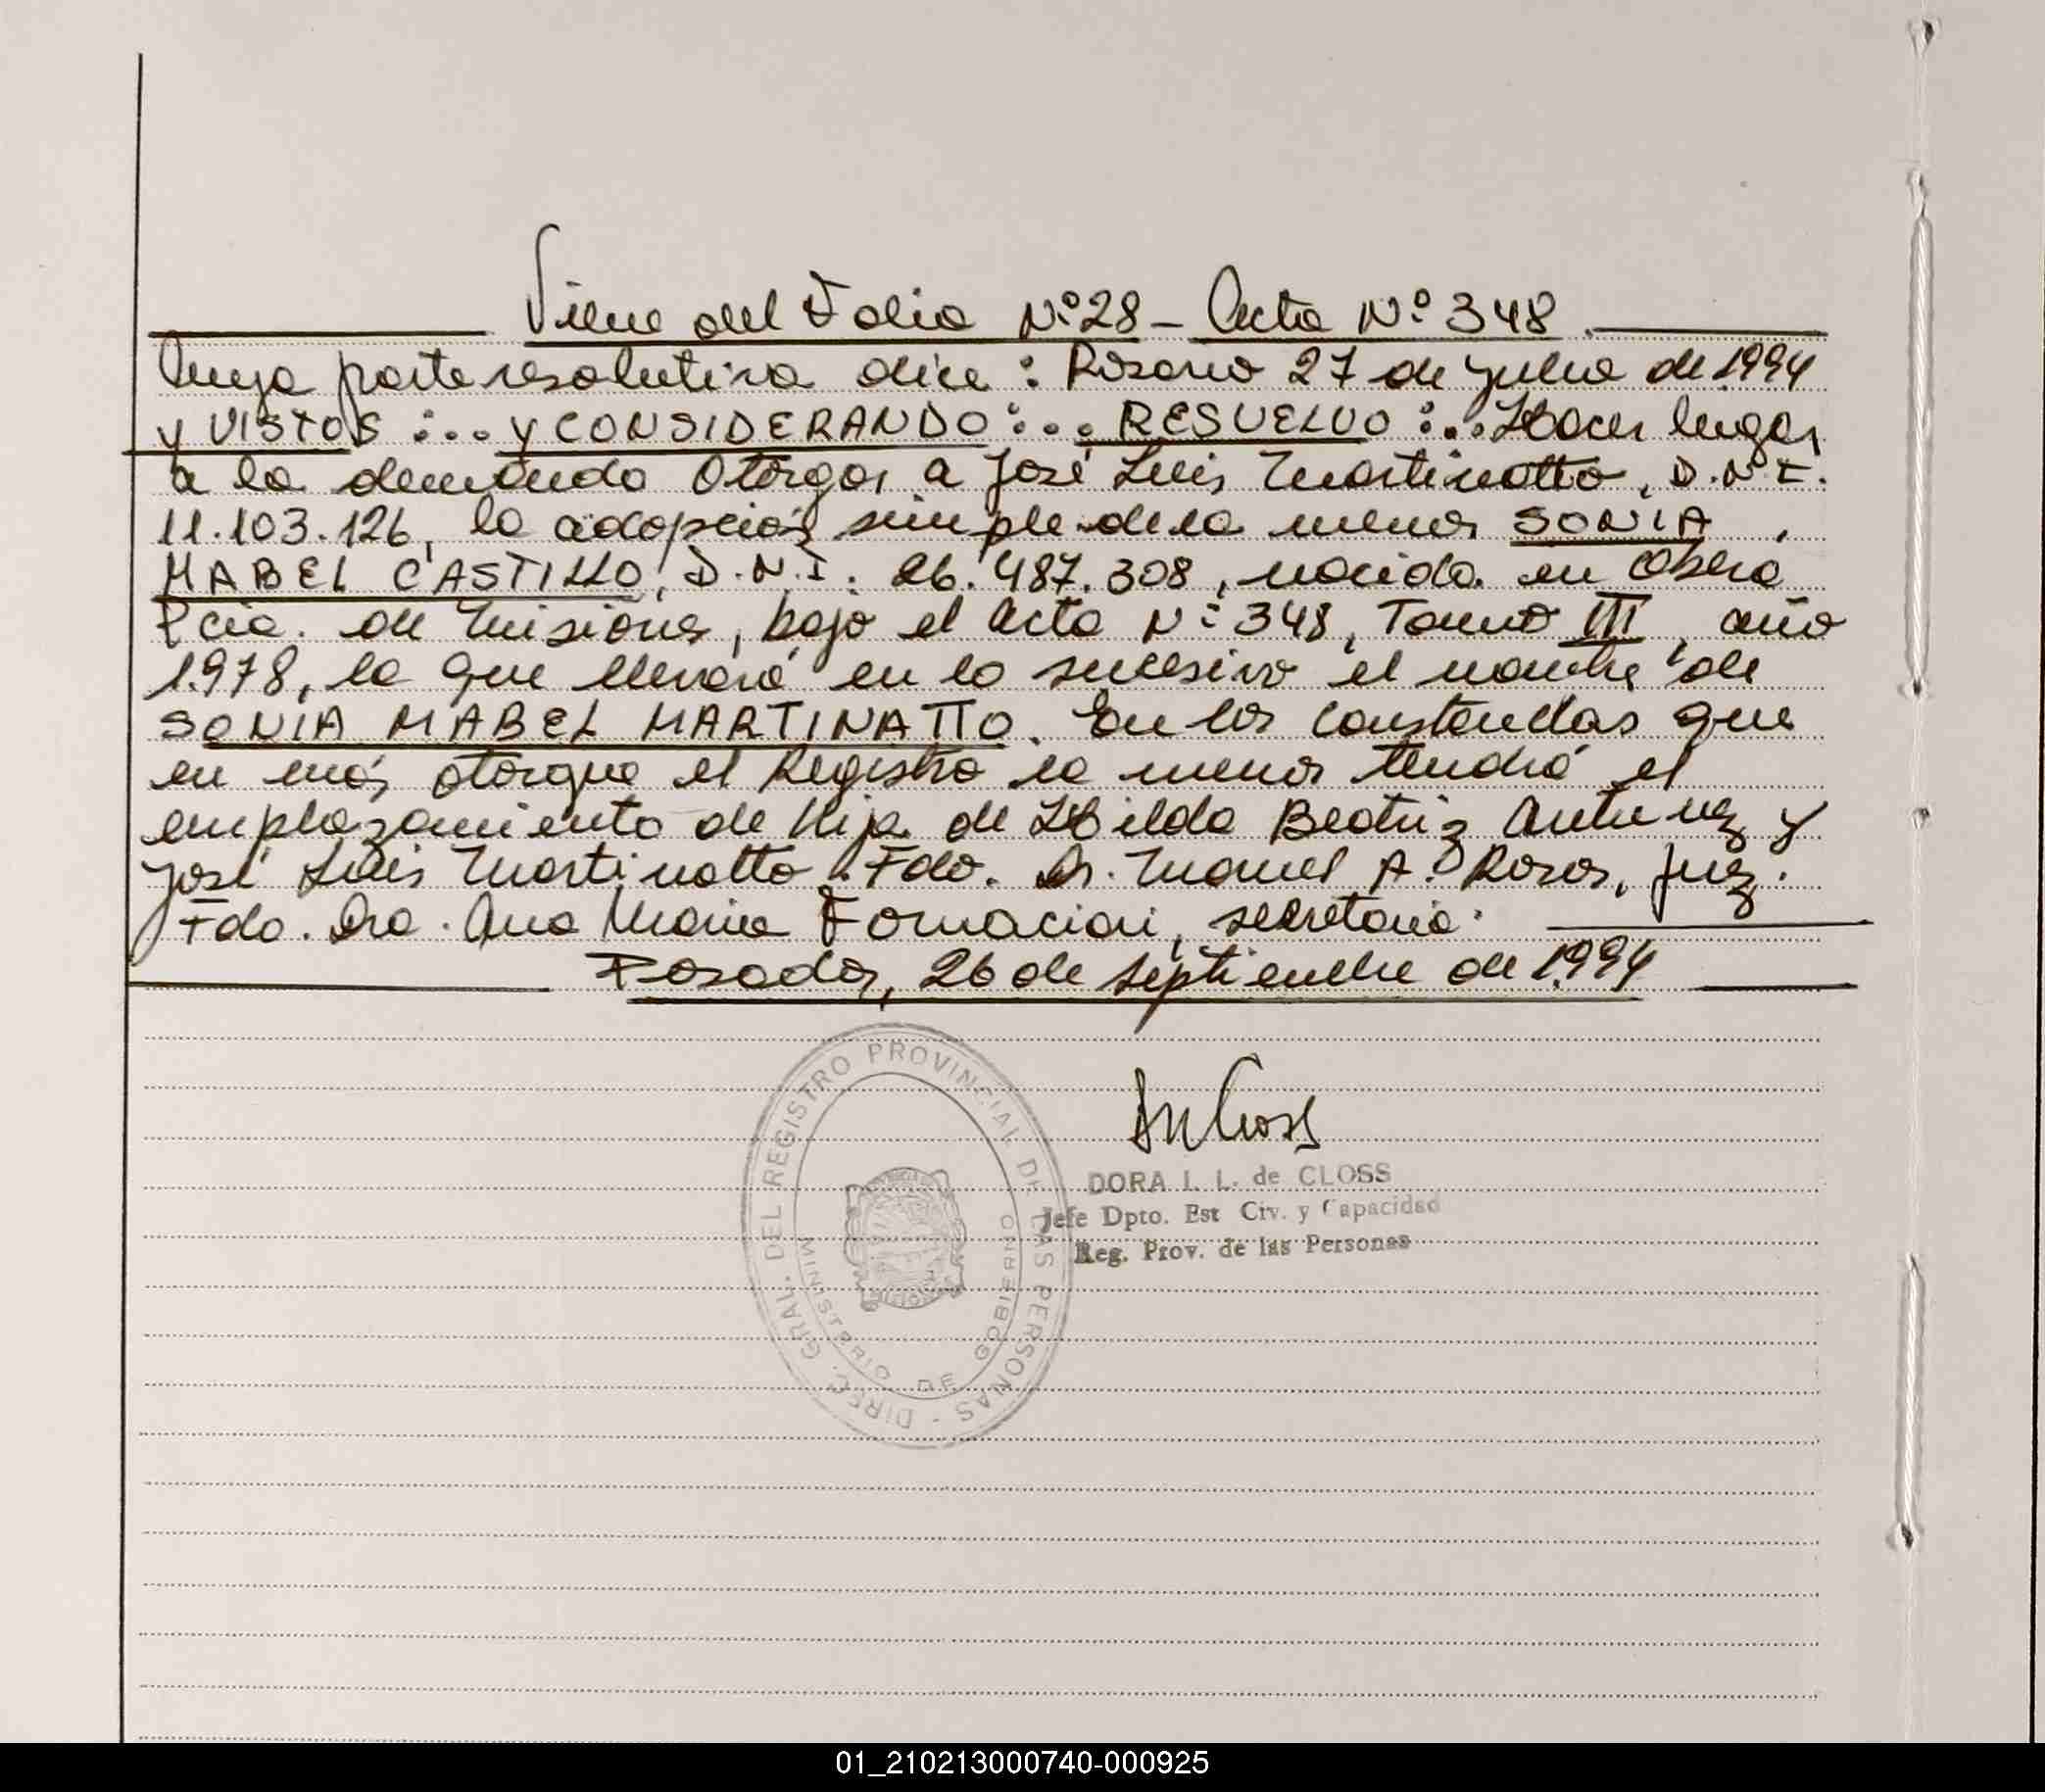 Viene del Folio Nº 28 - Acta Nº 348.
Cuya parte resolutiva dice: Rosario 27 de julio de 1994
y VISTOS:... y CONSIDERANDO:... RESUELVO:... Hacer lugar
a la demanda Otorgar a José Luis Martinatto, D.N.I.
11.103.126, la adopción simple de la menor SONIA
MABEL CASTILLO, D.N.I. 26.487.308, nacida en Oberá
Pcia. de Misiones, bajo el Acta Nº 348, Tomo III, año
1.978, la que llevará en lo sucesivo el nombre de
SONIA MABEL MARTINATTO. En las constancias que
en más otorgue el Registro la menor tendrá el
emplazamiento de Hija de Hilda Beatriz Antunez y
José Luis Martinatto. Fdo. Dr. Manuel A. Rosas, Juez.
Fdo. Dra. Ana Maria Fornaciari, secretaria.
Posadas, 26 de septiembre de 1.994
DIREC. GRAL. DEL REGISTRO PROVINCIAL DE LAS PERSONAS -
MINISTERIO DE GOBIERNO
DORA I. L. de CLOSS
Jefe Dpto. Est Civ. y Capacidad
Reg. Prov. de las Personas
01_210213000740-000925